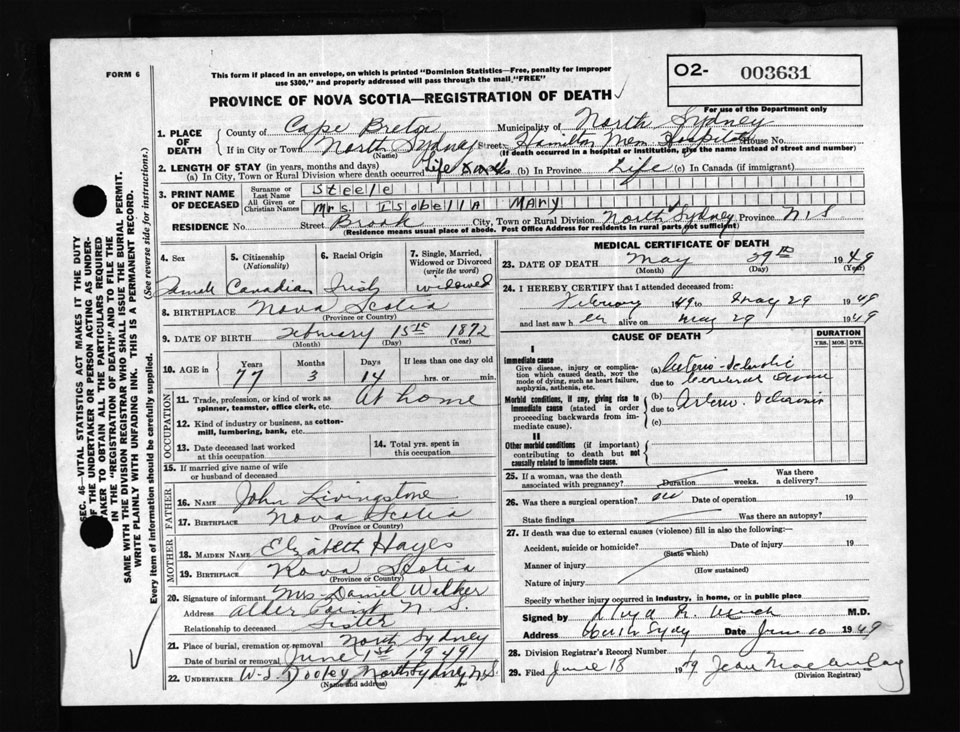 FORM 6
This form if placed in an envelope, on which is printed "Dominion Statistics—Free, penalty for improper
use $300," and properly addressed will pass through the mail "FREE"
O2- 003631
For use of the Department only
PROVINCE OF NOVA SCOTIA—REGISTRATION OF DEATH
1. PLACE OF DEATH
County of Cape Breton Municipality of North Sydney
If in City or Town North Sydney Street Hamilton Mem. Hospital House No.
(Name) (If death occurred in a hospital or institution, give the name instead of street and number)
2. LENGTH OF STAY (in years, months and days)
(a) In City, Town or Rural Division where death occurred Life (b) In Province Life (c) In Canada (if immigrant)
3. PRINT NAME OF DECEASED
Surname or Last Name Steele
All Given or Christian Names Mrs. Isobella Mary
RESIDENCE No. Street Brook City, Town or Rural Division North Sydney Province N.S
(Residence means usual place of abode. Post Office Address for residents in rural parts not sufficient)
4. Sex Female
5. Citizenship (Nationality) Canadian
6. Racial Origin Irish
7. Single, Married, Widowed or Divorced (write the word) widowed
8. BIRTHPLACE Nova Scotia
(Province or Country)
9. DATE OF BIRTH February 15th 1872
(Month) (Day) (Year)
10. AGE in Years Months Days If less than one day old
77 3 14 hrs. or min.
OCCUPATION
11. Trade, profession, or kind of work as spinner, teamster, office clerk, etc. At home
12. Kind of industry or business, as cotton-mill, lumbering, bank, etc.
13. Date deceased last worked at this occupation
14. Total yrs. spent in this occupation
15. If married give name of wife or husband of deceased
FATHER
16. NAME John Livingstone
17. BIRTHPLACE Nova Scotia
(Province or Country)
MOTHER
18. MAIDEN NAME Elizabeth Hayes
19. BIRTHPLACE Nova Scotia
(Province or Country)
20. Signature of informant Mrs. Daniel Walker
Address Alder Point N.S.
Relationship to deceased Sister
21. Place of burial, cremation or removal North Sydney
Date of burial or removal June 1st 1949
22. UNDERTAKER W. J. Dooley, North Sydney N.S.
(Name and address)
MEDICAL CERTIFICATE OF DEATH
23. DATE OF DEATH May 29th 1949
(Month) (Day) (Year)
24. I HEREBY CERTIFY that I attended deceased from:
February 1949 to May 29 1949
and last saw her alive on May 29 1949
CAUSE OF DEATH
DURATION
YRS. MOS. DYS.
I
Immediate cause
Give disease, injury or complication which caused death, not the mode of dying, such as heart failure, asphyxia, asthenia, etc.
(a)
due to
Morbid conditions, if any, giving rise to immediate cause (stated in order proceeding backwards from immediate cause).
(b)
due to
(c)
II
Other morbid conditions (if important) contributing to death but not causally related to immediate cause.
25. If a woman, was the death associated with pregnancy? Duration weeks. Was there a delivery?
26. Was there a surgical operation? Date of operation 19
State findings Was there an autopsy?
27. If death was due to external causes (violence) fill in also the following:—
Accident, suicide or homicide? Date of injury 19
(State which)
Manner of injury
(How sustained)
Nature of injury
Specify whether injury occurred in industry, in home, or in public place
Signed by M.D.
Address North Sydney Date June 10 1949
28. Division Registrar's Record Number
29. Filed June 18 19 Jean MacAulay
(Division Registrar)
SEC. 46—VITAL STATISTICS ACT MAKES IT THE DUTY
OF THE UNDERTAKER OR PERSON ACTING AS UNDER-
TAKER TO OBTAIN ALL THE PARTICULARS REQUIRED
IN THE "REGISTRATION OF DEATH" AND TO FILE THE
SAME WITH THE DIVISION REGISTRAR WHO SHALL ISSUE THE BURIAL PERMIT.
WRITE PLAINLY WITH UNFADING INK. THIS IS A PERMANENT RECORD.
Every item of information should be carefully supplied. (See reverse side for instructions.)